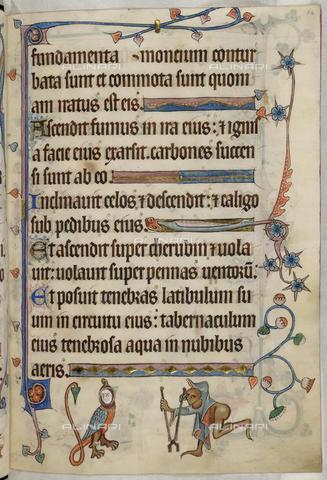 fundamenta moncium contur
bata sunt et commota sunt quoni
am iratus est eis.
Ascendit fumus in ira eius: ⁊ igni
a facie eius exarsit. carbones succen
si sunt ab eo.
Inclinauit celos ⁊ descendit: ⁊ caligo
sub pedibus eius.
Et ascendit super cherubin ⁊ uola
uit: uolauit super pennas uentorū:
Et posuit tenebras latibulum su
um in circuitu eius: tabernaculum
eius tenebrosa aqua in nubibus
aeris.
ALINARI
ALINARI
ALINARI
ALINARI